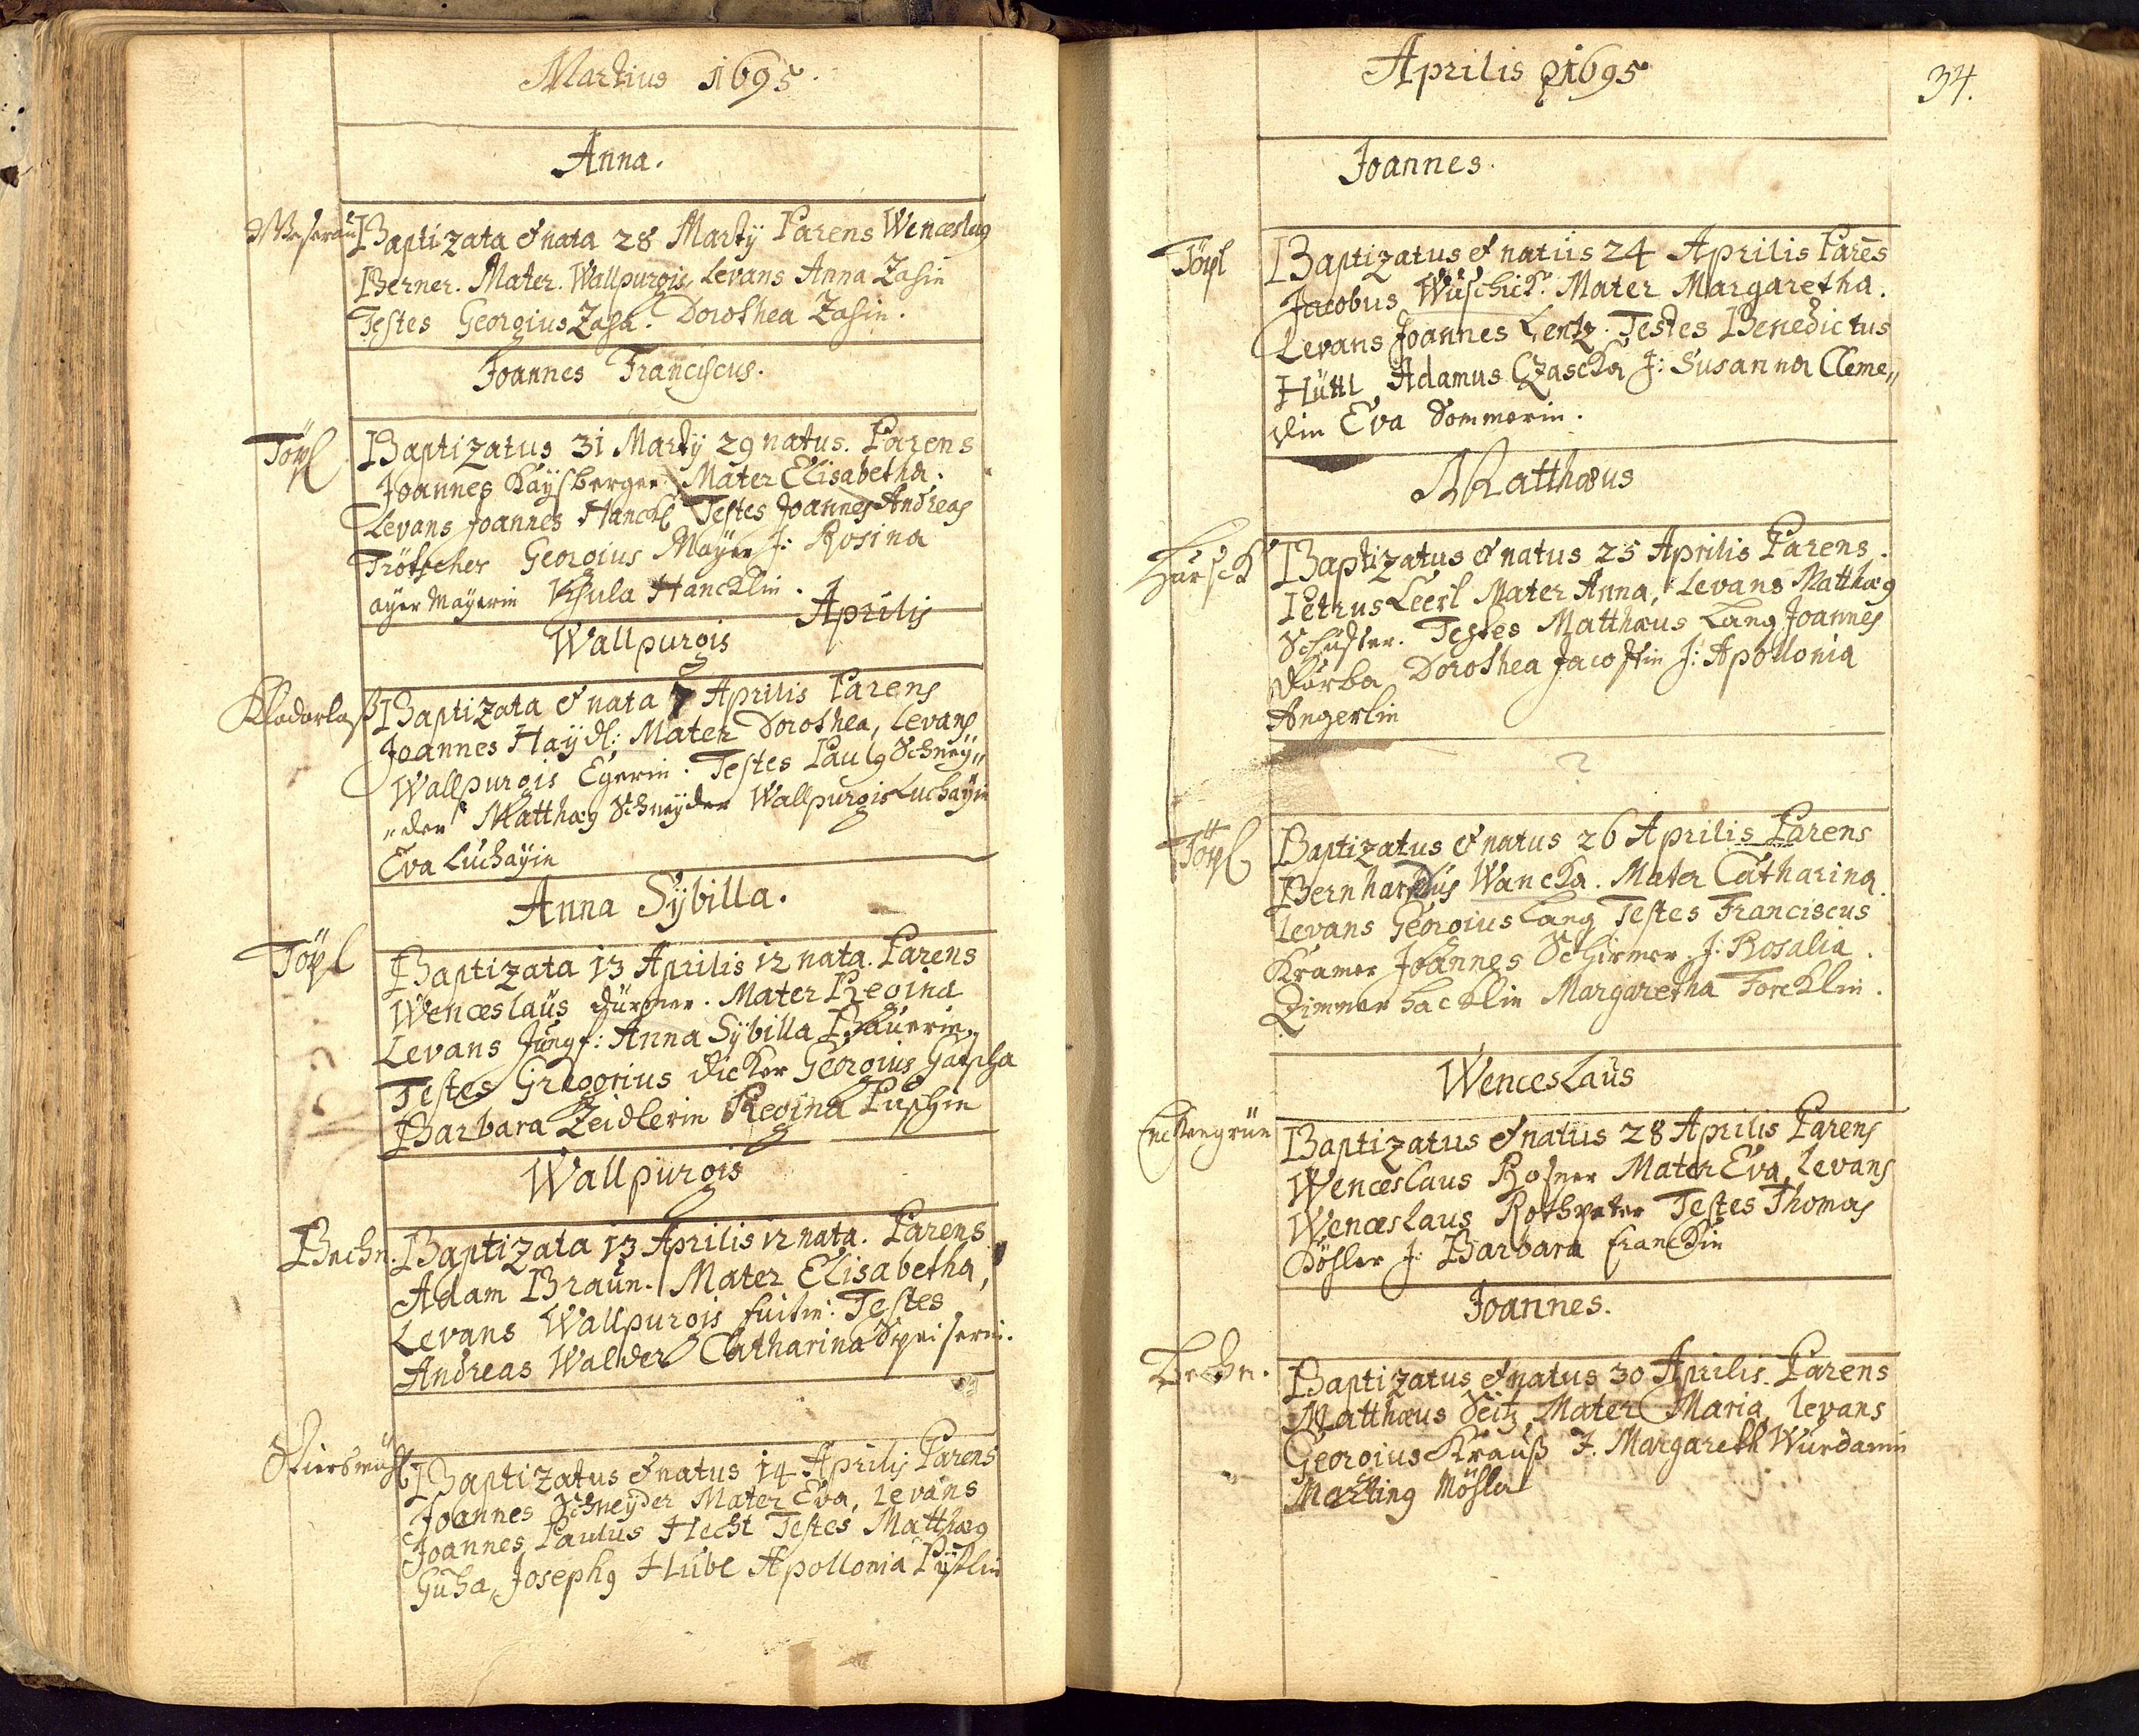 Martius 1695.
Anna.
Baptizata & nata 28 Martÿ Parens Wenceslaꝰ
Berner. Mater. Wallpurgis, Levans Anna Zasin
Testes Georgius Zasa. Dorothea Zasin.
Joannes Franciscus.
Töpl
Baptizatus 31 Martÿ 29 natus. Parens
Joannes Kaÿsberger Mater Elisabetha.
Levans Joannes Hanckl Testes Joannes Andreas
Trötscher Georgius Maÿer J: Rosina
Maÿerin Hancklin.
Aprilis
Wallpurgis
Baptizata & nata 7 Aprilis Parens
Joannes Haÿdl: Mater Dorothea, Levans
Wallpurgis Egerin. Testes Paulꝰ Schneÿ„
„der Matthæꝰ Schneÿder Wallpurgis Luchaÿin
Eva Luchaÿin
Anna Sÿbilla.
Töpl
Baptizata 13 Aprilis 12 nata. Parens
Wenceslaus Dürmer. Mater Regina
Levans Jungf: Anna Sÿbilla Bäuerin,
Testes Gregorius Dicker Georgius Gatscha
Barbara Zeidlerin Regina Puschin
Wallpurgis
Bechn.
Baptizata 13 Aprilis 12 nata. Parens
Adam Braun. Mater Elisabetha,
Levans Wallpurgis Testes
Andreas Walder Catharina Speiserin.
Baptizatus & natus 14 Aprilis Parens
Joannes Schneÿder Mater Eva, levans
Joannes Paulus Hecht Testes Matthæꝰ
Guha, Josephꝰ Hübl Apollonia
Aprilis 1695
34.
Joannes.
Töpl
Baptizatus & natus 24 Aprilis Parēs
Jacobus Wuschick. Mater Margaretha.
Levans Joannes Lentz. Testes Benedictus
Hüttl Adamus Czascka J: Susanna Cleme„
Eva Sommerin.
Matthæus
Baptizatus & natus 25 Aprilis Parens.
Petrus Leerl Mater Anna, Levans Matthæꝰ
Schuster. Testes Matthæus Lang Joannes
Dorothea J: Apollonia
Angerlin
?
Töpl
Baptizatus & natus 26 Aprilis Parens
Bernhardus Wancka. Mater Catharina.
Levans Georgius Lang Testes Franciscus
Kramer Joannes Schirmer J: Rosalia.
Zimmerhacklin Margaretha Torcklin.
Wenceslaus
Enckengrün
Baptizatus & natus 28 Aprilis Parens
Wenceslaus Rosner Mater Eva, levans
Wenceslaus Testes Thomas
Kösler J: Barbara Franckin
Joannes.
Bechn.
Baptizatus & natus 30 Aprilis. Parens
Matthæus Seitz Mater Maria levans
Georgius Krauß J. Margareth Wurdamin
Martinꝰ Mösla